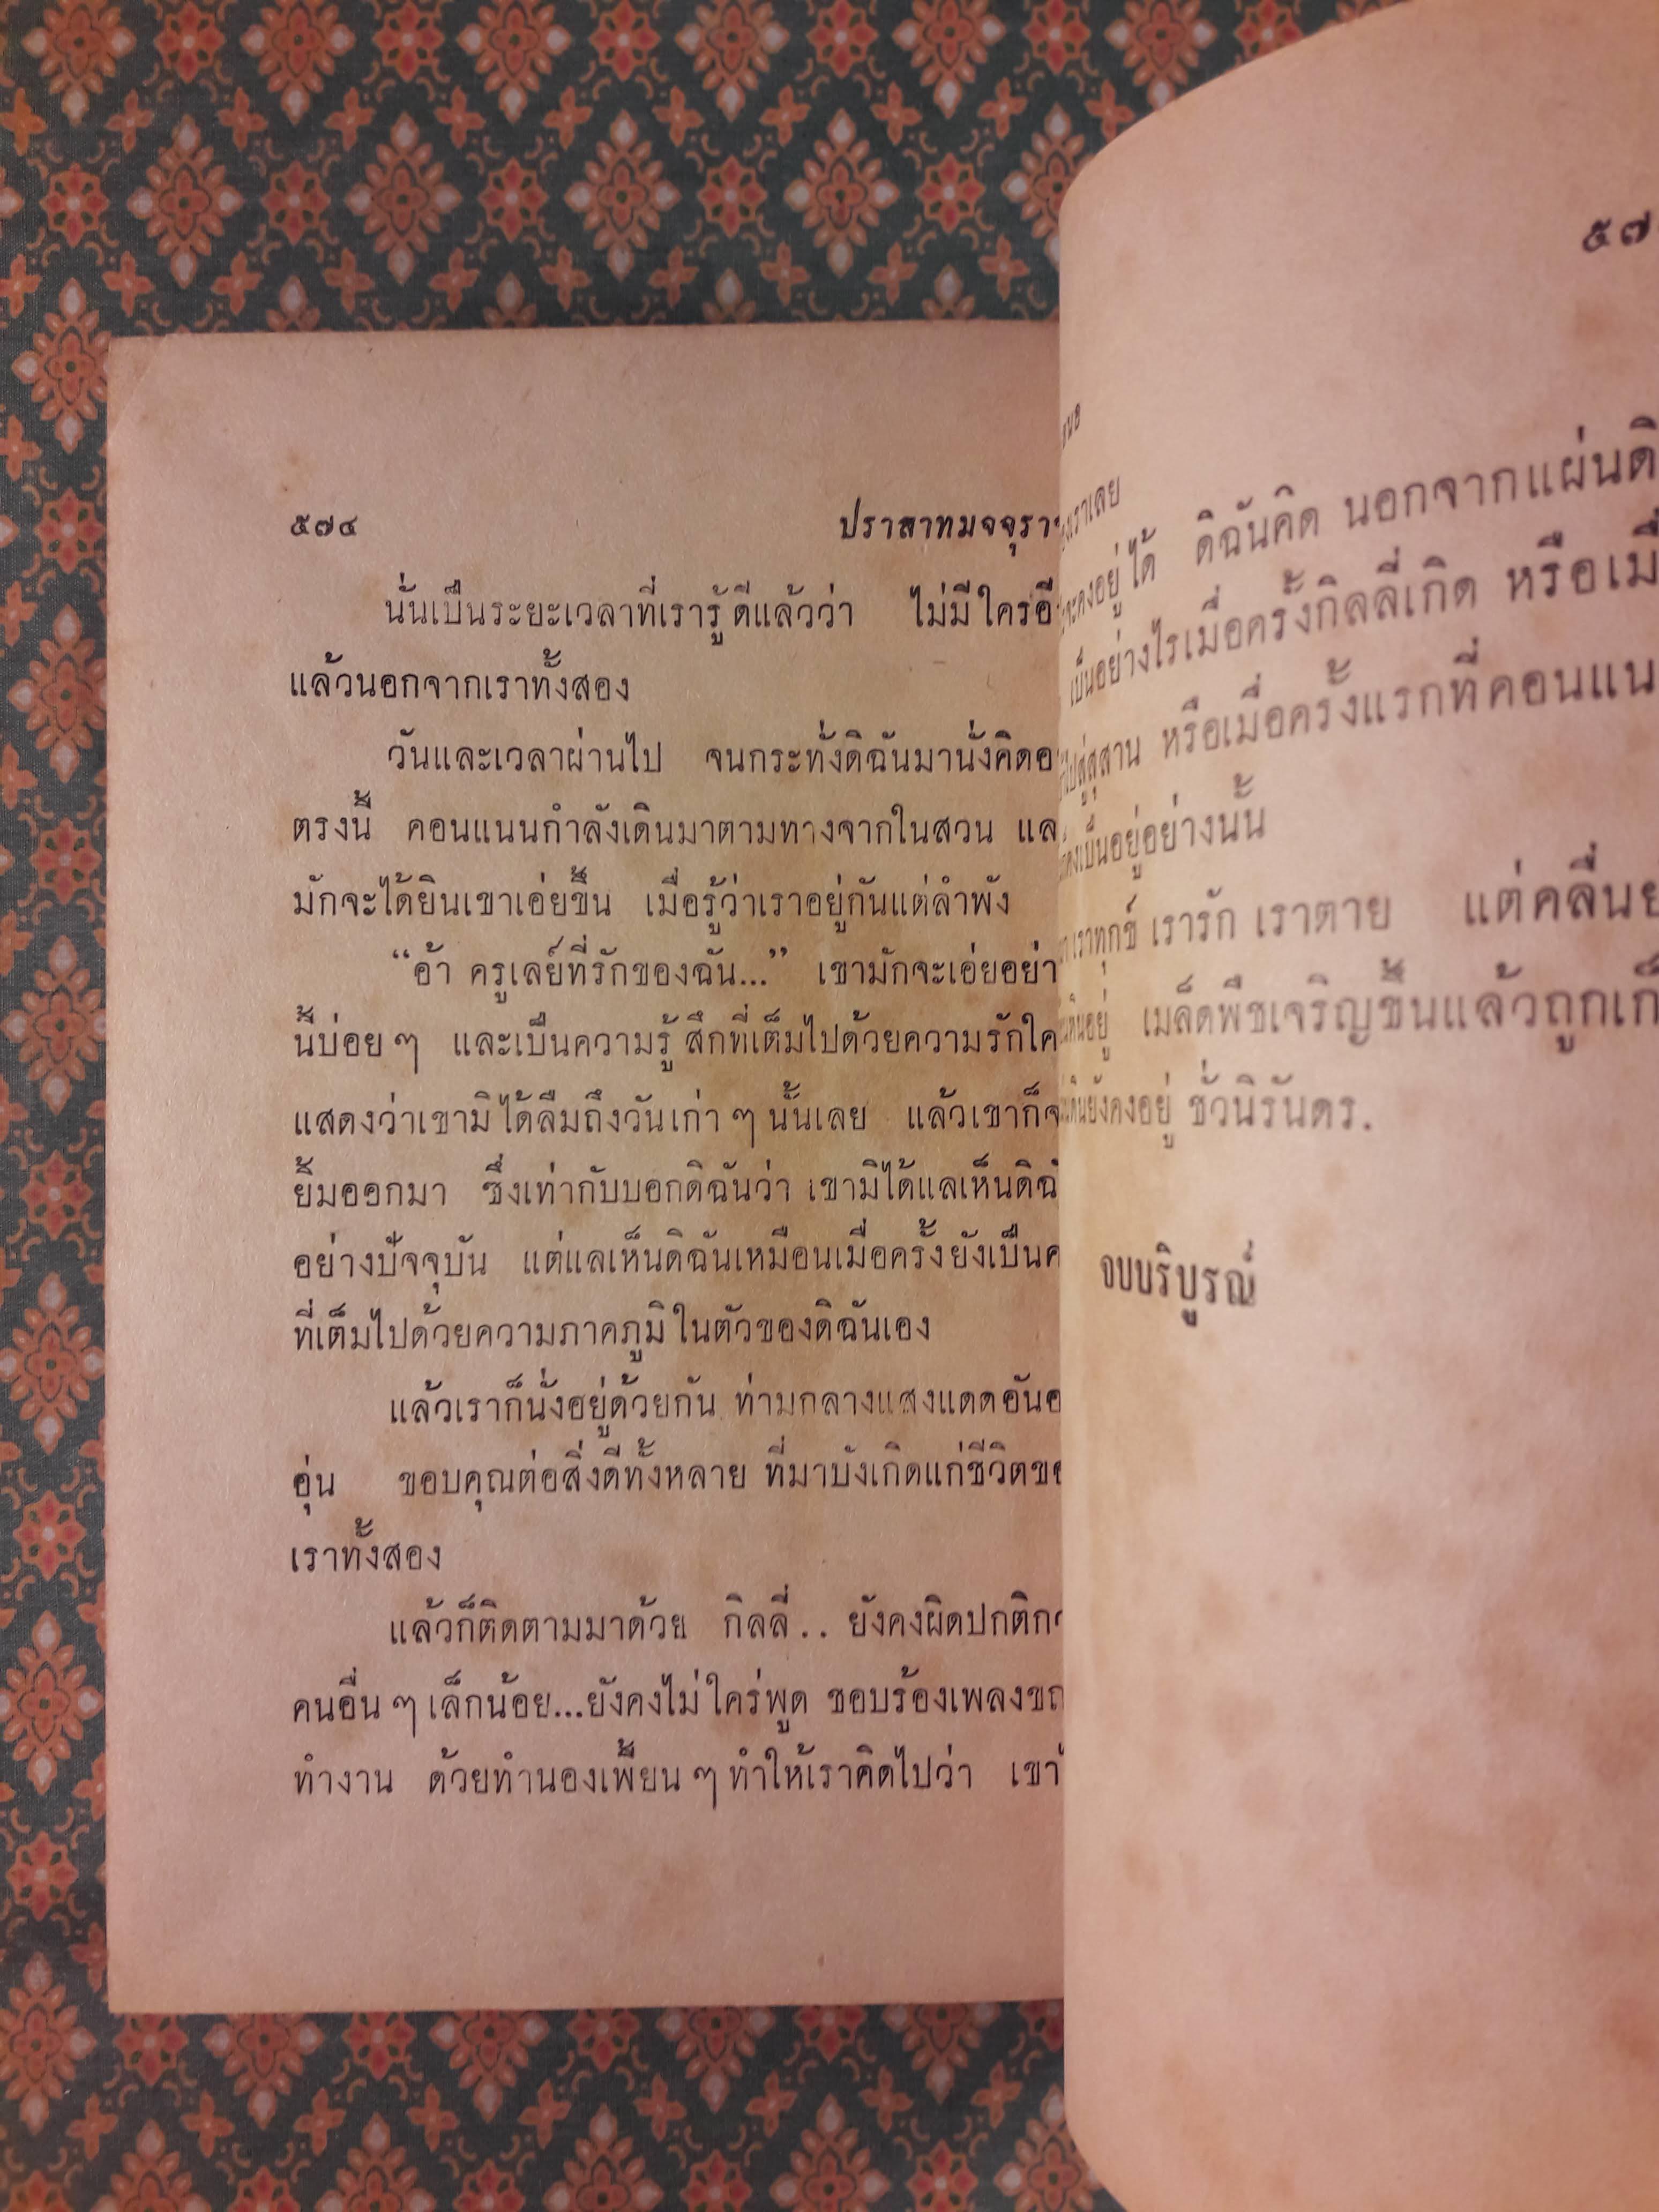 ๕๗๔
ปราสาทมจจุรา
นั่นเป็นระยะเวลาที่เรารู้ดีแล้วว่า ไม่มีใครอี
แล้วนอกจากเราทั้งสอง
วันและเวลาผ่านไป จนกระทั่งดิฉันมานั่งคิดอ
ตรงนี้ คอนแนนกำลังเดินมาตามทางจากในสวน แล
มักจะได้ยินเขาเอ่ยขึ้น เมื่อรู้ว่าเราอยู่กันแต่ลำพัง
“อ้า ครูเลย์ที่รักของฉัน...” เขามักจะเอ่ยอย่า
นี้บ่อยๆ และเป็นความรู้สึกที่เต็มไปด้วยความรักใค
แสดงว่าเขามิได้ลืมถึงวันเก่าๆนั้นเลย แล้วเขาก็จ
ยิ้มออกมา ซึ่งเท่ากับบอกดิฉันว่า เขามิได้แลเห็นดิฉั
อย่างปัจจุบัน แต่แลเห็นดิฉันเหมือนเมื่อครั้งยังเป็นค
ที่เต็มไปด้วยความภาคภูมิในตัวของดิฉันเอง
แล้วเราก็นั่งอยู่ด้วยกัน ท่ามกลางแสงแดดอันอ
อุ่น ขอบคุณต่อสิ่งดีทั้งหลาย ที่มาบังเกิดแก่ชีวิตขอ
เราทั้งสอง
แล้วก็ติดตามมาด้วย กิลลี่.. ยังคงผิดปกติก
คนอื่นๆเล็กน้อย...ยังคงไม่ใคร่พูด ชอบร้องเพลงขณ
ทำงาน ด้วยทำนองเพี้ยนๆทำให้เราคิดไปว่า เขา
๕๗
เราเลย
คงอยู่ได้ ดิฉันคิด นอกจากแผ่นดิ
เป็นอย่างไรเมื่อครั้งกิลลี่เกิด หรือเมื่
ไปสู่สุสาน หรือเมื่อครั้งแรกที่คอนแน
คงเป็นอยู่อย่างนั้น
เราทุกข์ เรารัก เราตาย แต่คลื่นย
อยู่ เมล็ดพืชเจริญขึ้นแล้วถูกเก็
ยังคงอยู่ ชั่วนิรันดร.
จบบริบูรณ์